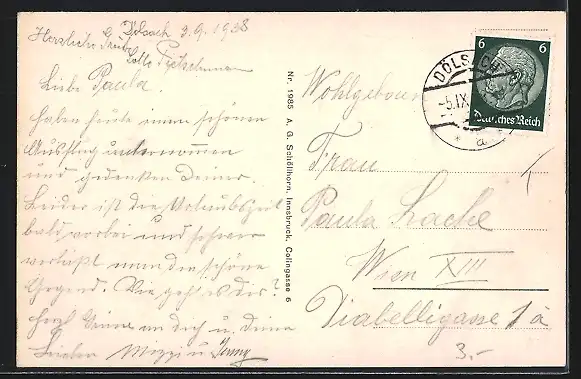 Dölsach 2.9.1938
Herzliche Grüße
Lotte
Liebe Paula.
Haben heute einen schönen
Ausflug unternommen
und gedenken Deiner.
Leider ist die Urlaubszeit
bald vorbei und schwer
verläßt man die schöne
Gegend. Wie geht es dir?
herzl. Grüße an dich u. deine
Lieben Mizzi u. Jenny
Nr. 1985 A. G. Schöllhorn, Innsbruck, Colingasse 6
6 6
Deutsches Reich
DÖLSACH
-5.IX
* a
Wohlgeboren
Frau
Paula Lache
Wien XIII
Diabelligasse 1 a
3.-